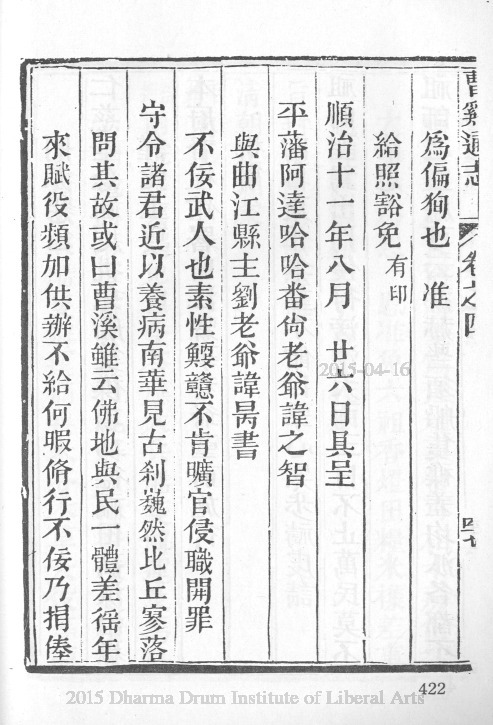 曹溪通志 卷之四
爲偏狥也准
給照豁免 有印
順治十一年八月 廿六日具呈
平藩阿達哈哈番尙老爺諱之智
與曲江縣主劉老爺諱昺書
不佞武人也素性鯁戇不肯曠官侵職開罪
守令諸君近以養病南華見古刹巍然比丘寥落
問其故或曰曹溪雖云佛地與民一體差徭年
來賦役頻加供辦不給何暇脩行不佞乃捐俸
2015-04-16
422
2015 Dharma Drum Institute of Liberal Arts